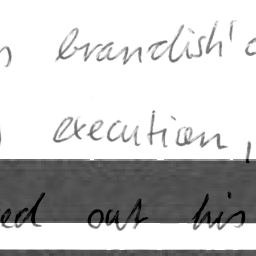 brandish'd
execution,
out his